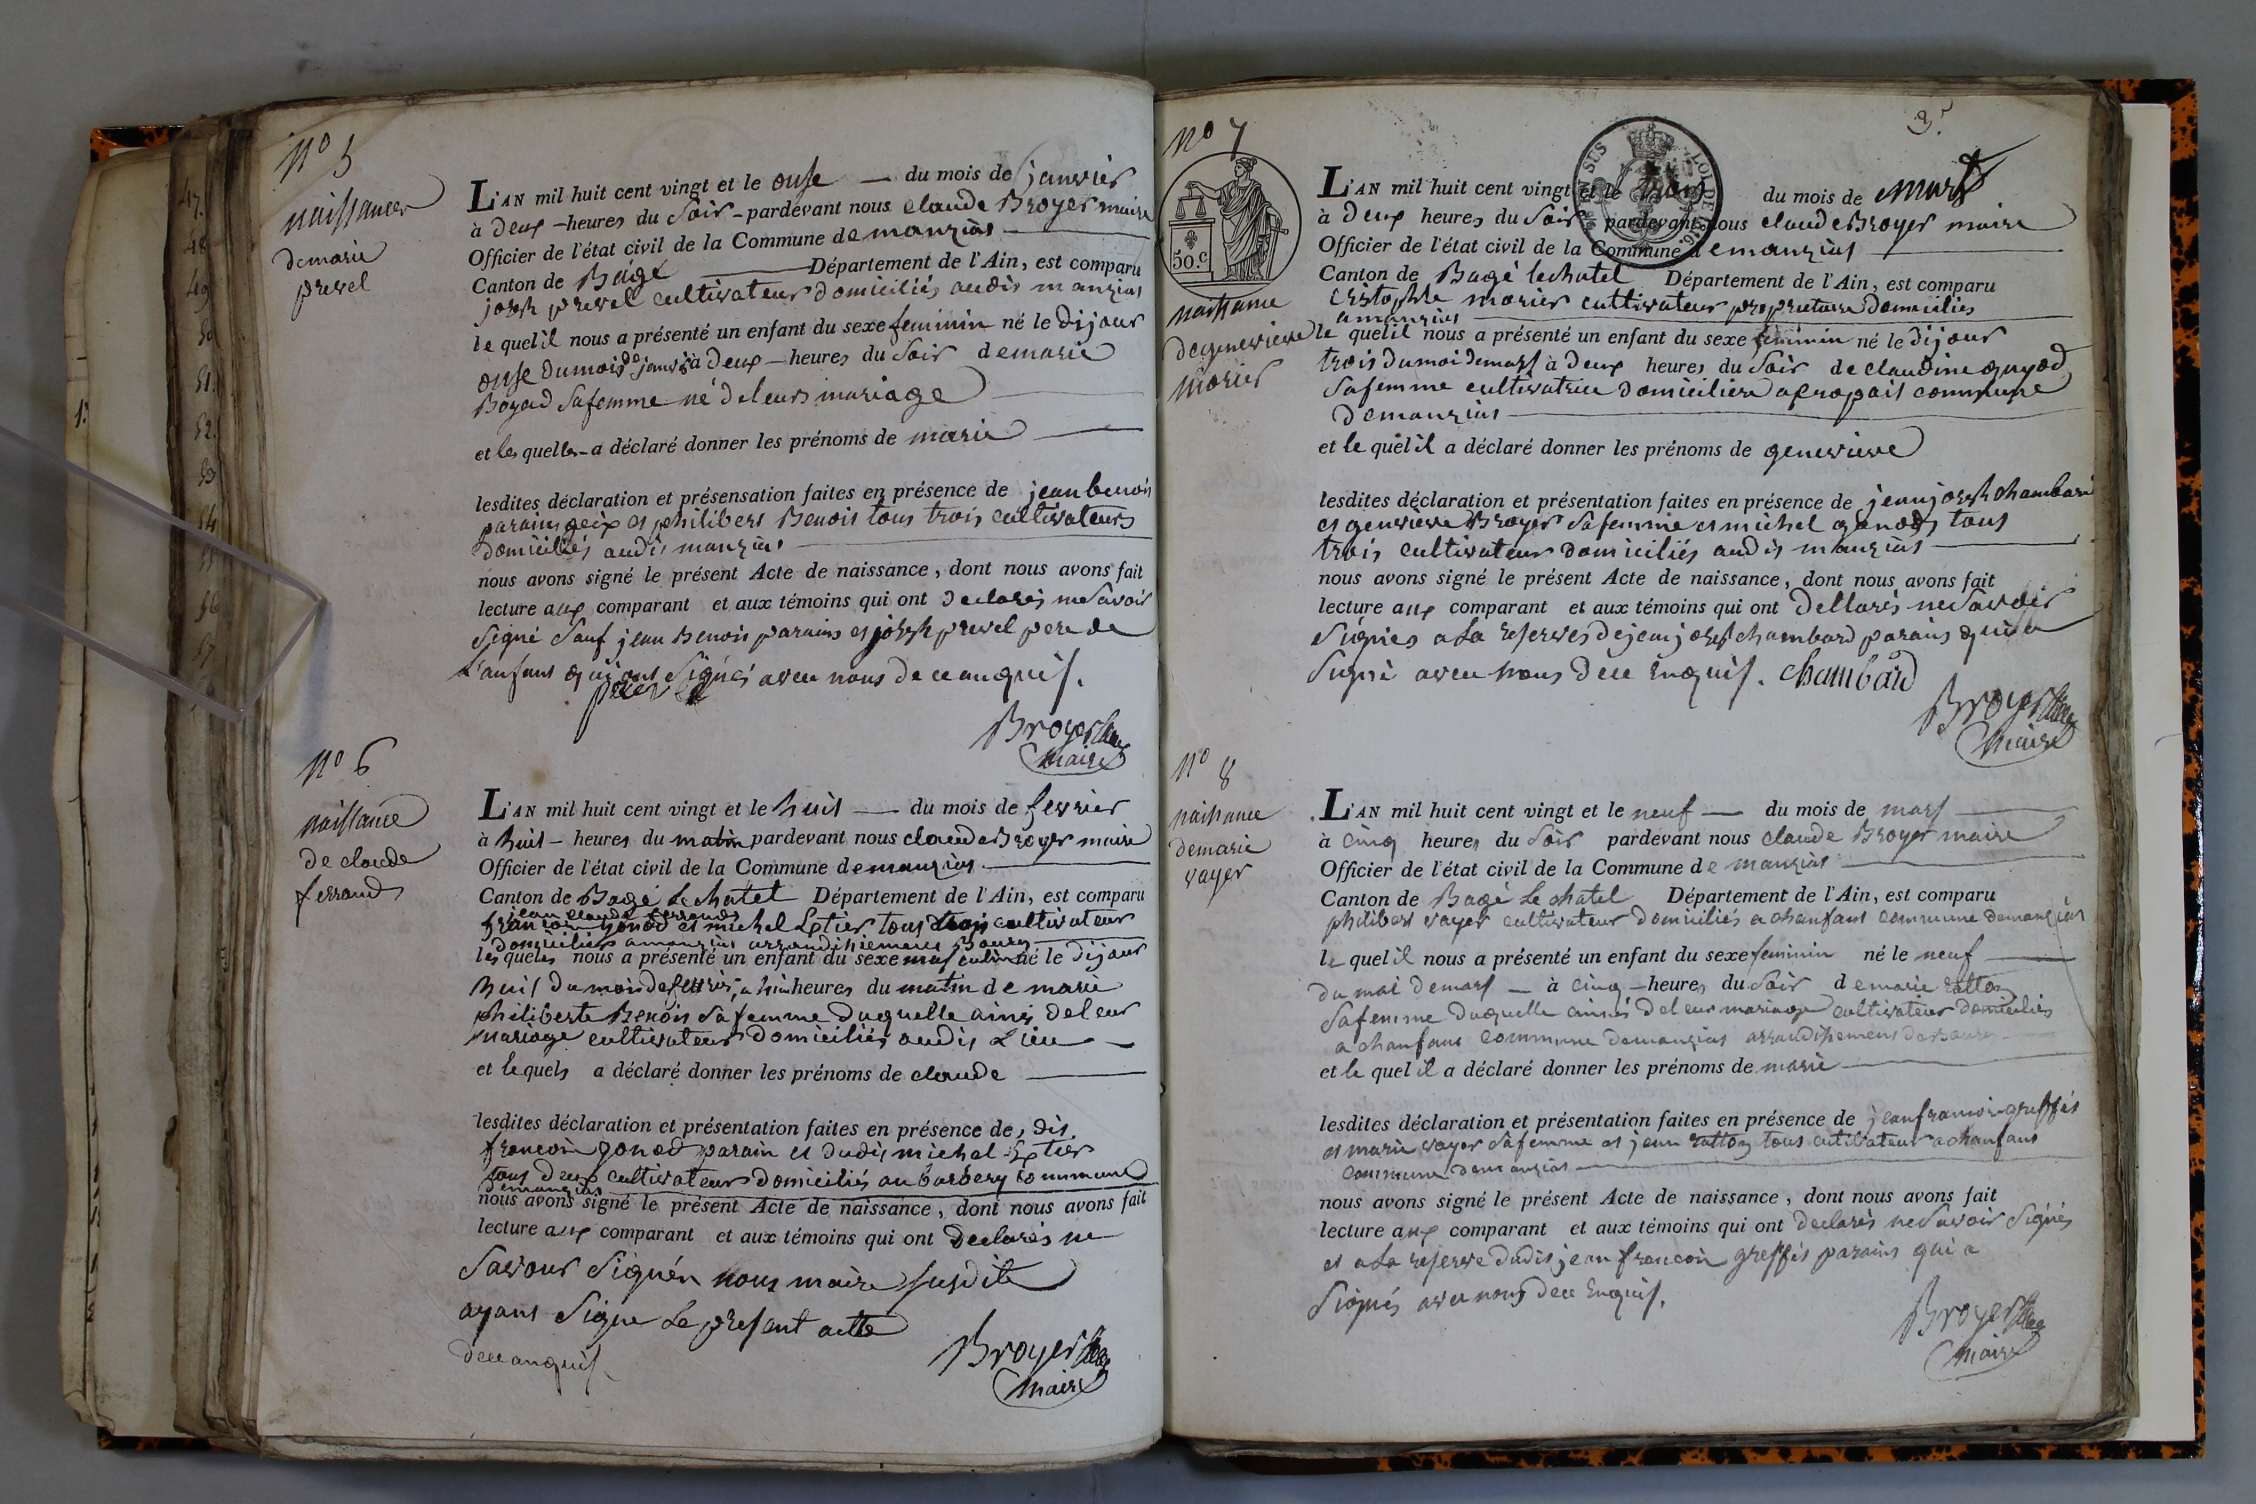 No 5
naissance
de marie
prevel
L'AN mil huit cent vingt et le onse du mois de janvier
à deux heures du soir pardevant nous claude Broyer maire
Officier de l'état civil de la Commune de manziat
Canton de Bagé Département de l'Ain, est comparu
joseph prevel cultivateur domiciliés audit manziat
le quel il nous a présenté un enfant du sexe feminin né le dijour
onse du mois de janvier à deux heures du soir de marie
Boyad sa femme né de leurs mariage
et les quelles a déclaré donner les prénoms de marie
lesdites déclaration et présensation faites en présence de jean benoit
parains et philibert Benoit tous trois cultivateurs
domiciliés audit manziat
nous avons signé le présent Acte de naissance, dont nous avons fait
lecture aux comparant et aux témoins qui ont declarés ne savoir
signé sauf jean Benoit parains et joseph prevel pere de
l'anfant qui ont signés avec nous de ce anquis.
prevel
Broyer
maire
No 6
naissance
de claude
ferrand
L'AN mil huit cent vingt et le huit du mois de fevrier
à huit heures du matin pardevant nous claude Broyer maire
Officier de l'état civil de la Commune de manziat
Canton de Bagé Le chatel Département de l'Ain, est comparu
jean claude ferrand
francois gonod et michel tous trois cultivateur
domiciliés a manziat arrondissement Bourg
les queles nous a présenté un enfant du sexe masculin né le dijour
huit du moi de fevrier, a huit heures du matin de marie
philiberte Benoit sa femme duquelle ainsi de leur
mariage cultivateur domiciliés audit Lieu
et lequels a déclaré donner les prénoms de claude
lesdites déclaration et présentation faites en présence de, dit
francois gonod parain et dudit michel
tous deux cultivateur domiciliés au barbery commune
de manziat
nous avons signé le présent Acte de naissance, dont nous avons fait
lecture aux comparant et aux témoins qui ont declarés ne
savoir signér nous maire susdite
ayant signe le present acte
de ce anquis.
Broyer
maire
3.
No 7
50.c
naissance
de genevieve
morier
L'AN mil huit cent vingt et le trois du mois de mars
à deux heures du soir pardevant nous claude Broyer maire
Officier de l'état civil de la Commune de manziat
Canton de Bagé le chatel Département de l'Ain, est comparu
cristophe morier cultivateur proprietaire domiciliés
a manziat
le quel il nous a présenté un enfant du sexe feminin né le dijour
trois du moi de mars à deux heures du soir de claudine guyod
sa femme cultivatrice domicilieé commune
de manziat
et le quel il a déclaré donner les prénoms de genevieve
lesdites déclaration et présentation faites en présence de jean joseph chambard
et genevieve Broyer sa femme et michel gonod tous
trois cultivateur domiciliés audit manziat
nous avons signé le présent Acte de naissance, dont nous avons fait
lecture aux comparant et aux témoins qui ont dellarés ne savoir
signés a la reserves de jean joseph chambard parains qui a
signé avec nous de ce Enquis. chambard
Broyer
maire
No 8
naissance
de marie
vayer
L'AN mil huit cent vingt et le neuf du mois de mars
à cinq heures du soir pardevant nous claude Broyer maire
Officier de l'état civil de la Commune de manziat
Canton de Bagé Le chatel Département de l'Ain, est comparu
philibert vayer cultivateur domiciliés a chanfant commune de manziat
le quel il nous a présenté un enfant du sexe feminin né le neuf
du moi de mars à cinq heures du soir de marie ratton
sa femme duquelle ainsi de leur mariage cultivateur domiciliés
a chanfant commune de manziat arrondissement de Bourg
et le quel il a déclaré donner les prénoms de marie
lesdites déclaration et présentation faites en présence de jean francois greffet
et marie vayer sa femme et jean ratton tous cultivateur a chanfant
commune de manziat
nous avons signé le présent Acte de naissance, dont nous avons fait
lecture aux comparant et aux témoins qui ont declarés ne savoir signés
et a la reserve dudit jean francois greffet parains qui a
signés avec nous de ce Enquis.
Broyer
maire